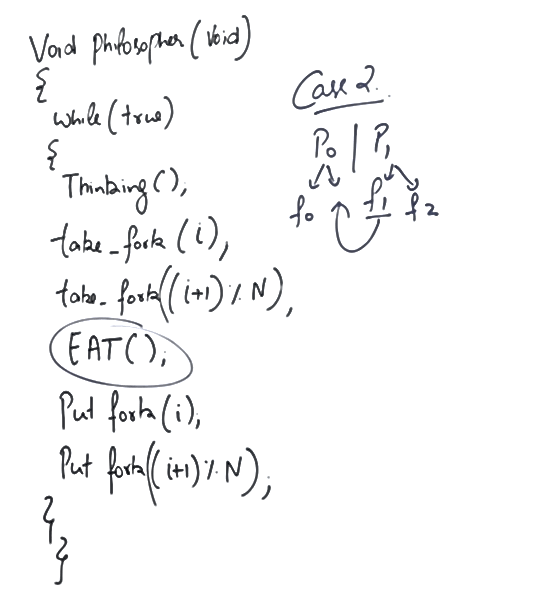 Void Philosopher(Void)
{
while(true)
{
Thinking();
take_fork(i);
take_fork((i+1)%N);
EAT();
Put fork(i);
Put fork((i+1)%N);
}
}
Case 2.
P0 | P1
f0 f1 f2